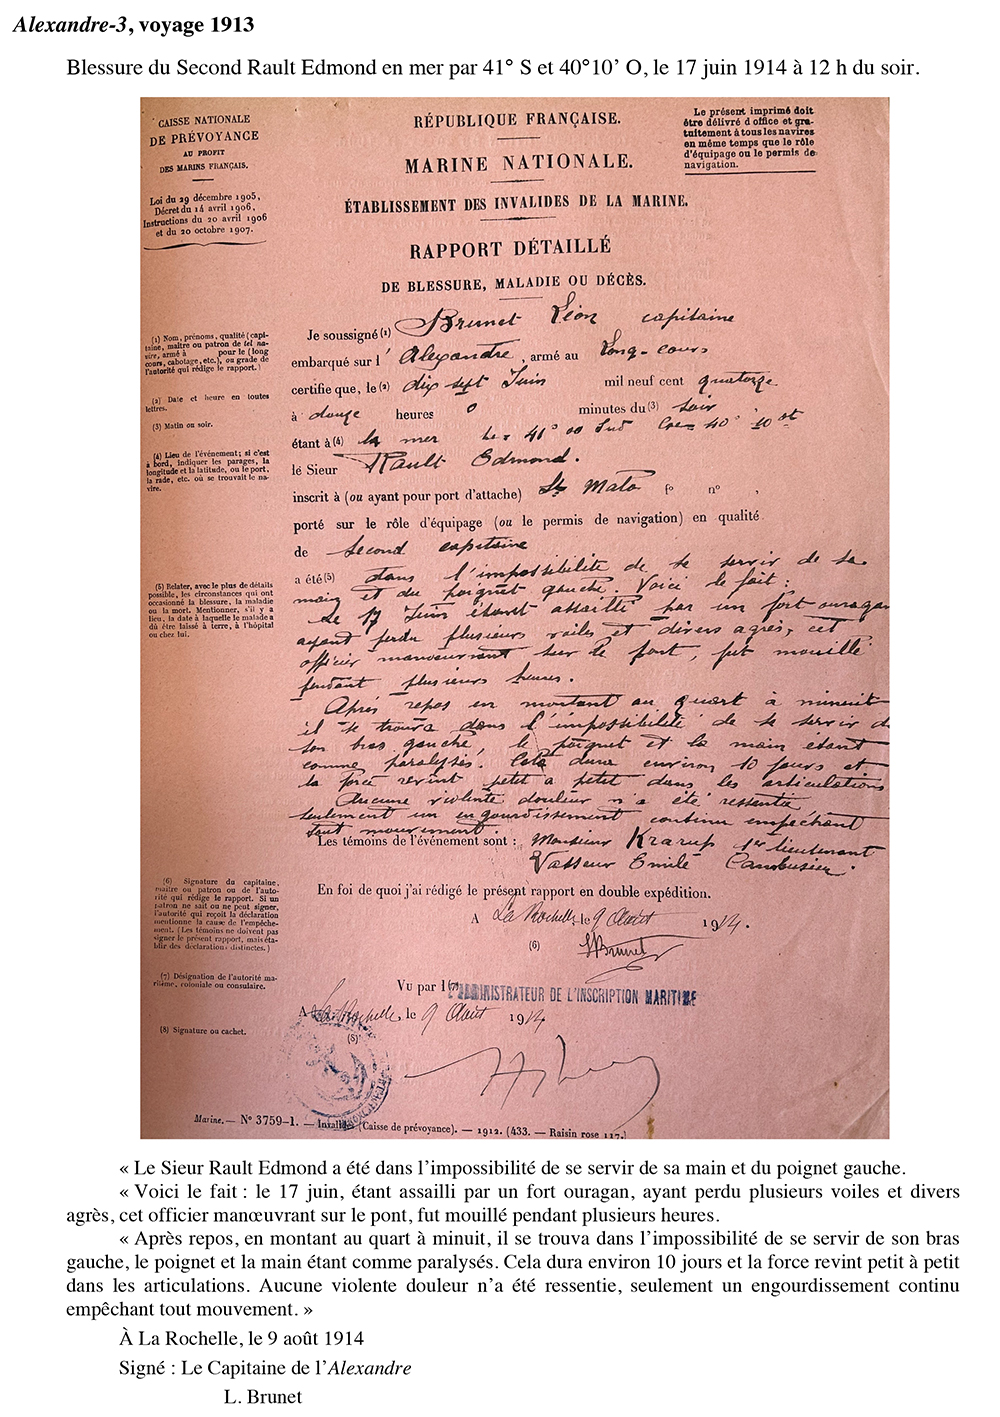 Alexandre-3, voyage 1913
Blessure du Second Rault Edmond en mer par 41° S et 40°10’ O, le 17 juin 1914 à 12 h du soir.
CAISSE NATIONALE
DE PRÉVOYANCE
AU PROFIT
DES MARINS FRANÇAIS.
Loi du 29 décembre 1905,
Décret du 14 avril 1906,
Instructions du 20 avril 1906
et du 20 octobre 1907.
RÉPUBLIQUE FRANÇAISE.
MARINE NATIONALE.
ÉTABLISSEMENT DES INVALIDES DE LA MARINE.
RAPPORT DÉTAILLÉ
DE BLESSURE, MALADIE OU DÉCÈS.
Le présent imprimé doit
être délivré d office et gra-
tuitement à tous les navires
en même temps que le rôle
d'équipage ou le permis de
navigation.
(1) Nom, prénoms, qualité (capi-
taine, maître ou patron de tel na-
vire, armé à pour le (long
cours, cabotage, etc.), ou grade de
l'autorité qui rédige le rapport.)
(2) Date et heure en toutes
lettres.
(3) Matin ou soir.
(4) Lieu de l'événement; si c'est
à bord, indiquer les parages, la
longitude et la latitude, ou le port,
la rade, etc. où se trouvait le na-
vire.
(5) Relater, avec le plus de détails
possible, les circonstances qui ont
occasionné la blessure, la maladie
ou la mort. Mentionner, s'il y a
lieu, la date à laquelle le malade a
dû être laissé à terre, à l'hôpital
ou chez lui.
(6) Signature du capitaine,
maître ou patron ou de l'auto-
rité qui rédige le rapport. Si un
patron ne sait ou ne peut signer,
l'autorité qui reçoit la déclaration
mentionne la cause de l'empêche-
ment. (Les témoins ne doivent pas
signer le présent rapport, mais éta-
blir des déclarations distinctes.)
(7) Désignation de l'autorité ma-
ritime, coloniale ou consulaire.
(8) Signature ou cachet.
Je soussigné (1) Brunet Léon capitaine
embarqué sur l' Alexandre, armé au Long-cours
certifie que, le (2) dix sept Juin mil neuf cent quatorze
à douze heures 0 minutes du (3) soir
étant à (4) la mer 41° 00 Sud 40° 10
lé Sieur Rault Edmond.
inscrit à (ou ayant pour port d'attache) St Malo f° n° ,
porté sur le rôle d'équipage (ou le permis de navigation) en qualité
de Second capitaine
a été (5) dans l'impossibilité de se servir de sa
main et du poignet gauche. Voici le fait :
Le 17 Juin étant assailli par un fort ouragan
ayant perdu plusieurs voiles et divers agrès, cet
officier manœuvrant sur le pont, fut mouillé
pendant plusieurs heures.
Après repos en montant au quart à minuit
il se trouva dans l'impossibilité de se servir de
son bras gauche, le poignet et la main étant
comme paralysés. Cela dura environ 10 jours et
la force revint petit a petit dans les articulations
Aucune violente douleur n'a été ressentie
seulement un engourdissement continu empêchant
tout mouvement.
Les témoins de l'événement sont : Monsieur Krarup 1er lieutenant
Vasseur Emile Cambusier.
En foi de quoi j'ai rédigé le présent rapport en double expédition.
A La Rochelle, le 9 Août 1914.
(6) LBrunet
Vu par l (7) ADMINISTRATEUR DE L'INSCRIPTION MARITIME
A La Rochelle, le 9 Août 1914
(8)
Marine. — N° 3759-1. — Invalides (Caisse de prévoyance). — 1912. (433. — Raisin rose 117.)
« Le Sieur Rault Edmond a été dans l’impossibilité de se servir de sa main et du poignet gauche.
« Voici le fait : le 17 juin, étant assailli par un fort ouragan, ayant perdu plusieurs voiles et divers
agrès, cet officier manœuvrant sur le pont, fut mouillé pendant plusieurs heures.
« Après repos, en montant au quart à minuit, il se trouva dans l’impossibilité de se servir de son bras
gauche, le poignet et la main étant comme paralysés. Cela dura environ 10 jours et la force revint petit à petit
dans les articulations. Aucune violente douleur n’a été ressentie, seulement un engourdissement continu
empêchant tout mouvement. »
À La Rochelle, le 9 août 1914
Signé : Le Capitaine de l’Alexandre
L. Brunet